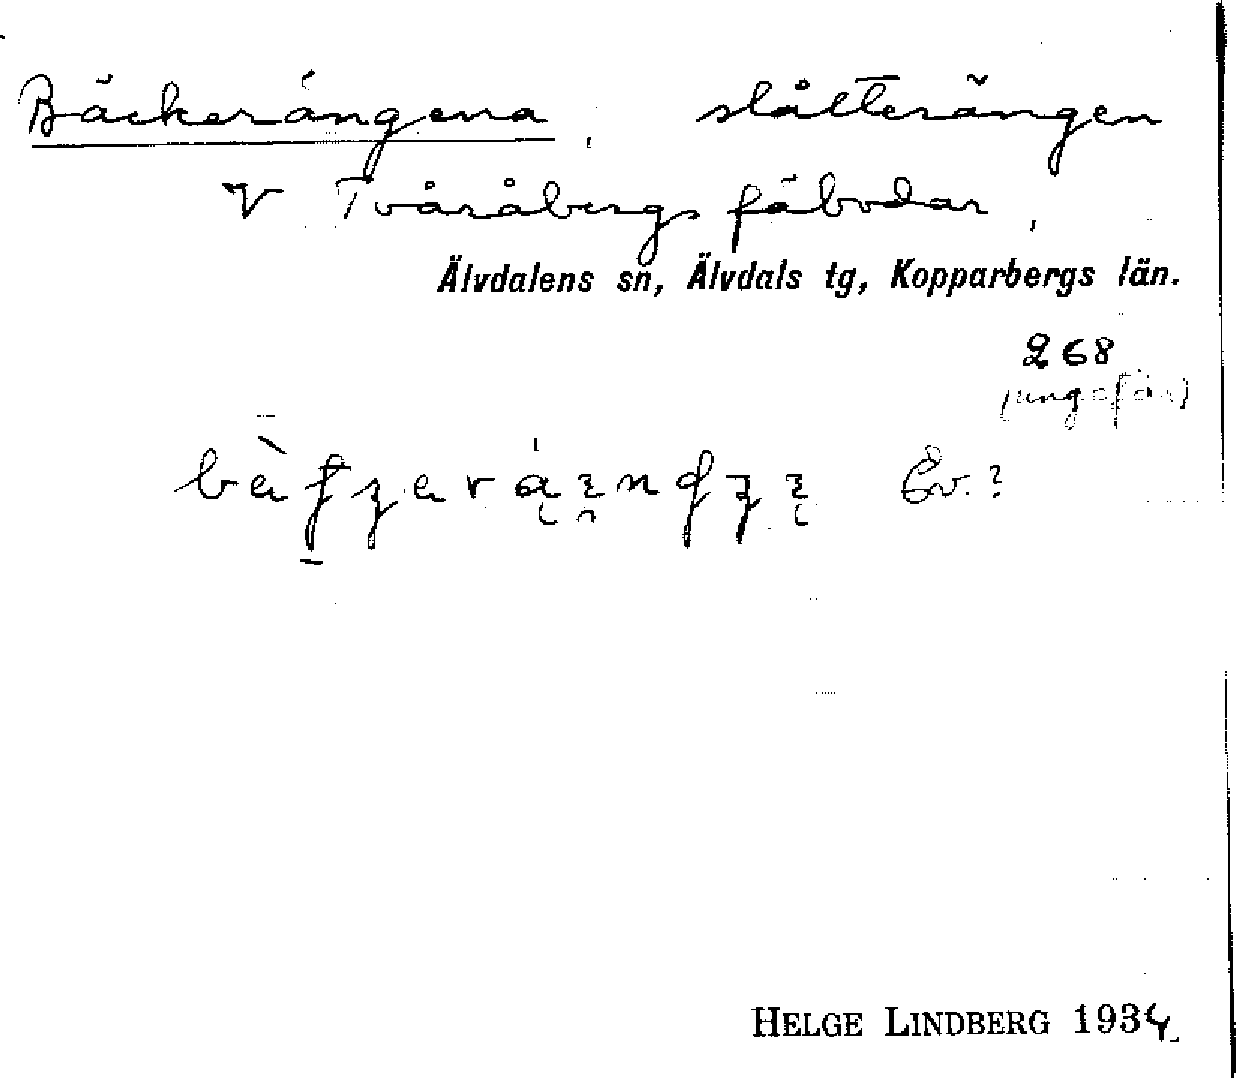 Bäckerängena, slåtterängen
V Tvåråbergs fäbodar,
Älvdalens sn, Älvdals tg, Kopparbergs län.
268
(ungefär)
Åv.?
HELGE LINDBERG 1934